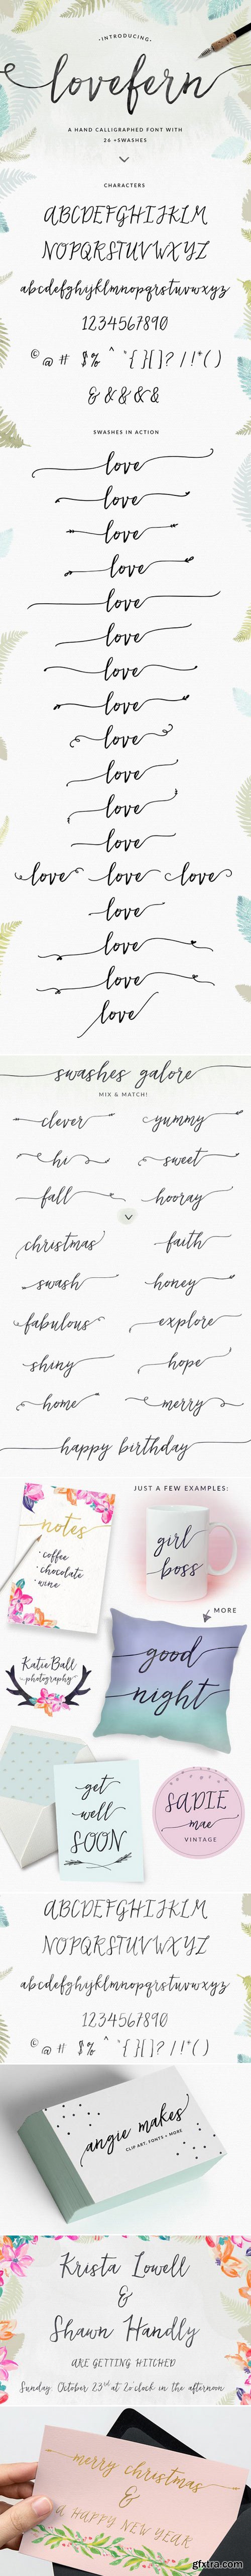 • INTRODUCING •
lovefern
A HAND CALLIGRAPHED FONT WITH
26 + SWASHES
CHARACTERS
ABCDEFGHIJKLM
NOPQRSTUVWXYZ
abcdefghijklmnopqrstuvwxyz
1234567890
© @ # $% ^ * { } [ ] ? / ! * ( )
& & & & &
SWASHES IN ACTION
love
love
love
love
love
love
love
love
love
love
love
love
love love love
love
love
love
love
swashes galore
MIX & MATCH!
clever yummy
hi sweet
fall hooray
christmas faith
swash honey
fabulous explore
shiny hope
home merry
happy birthday
JUST A FEW EXAMPLES:
notes
• coffee
• chocolate
• wine
girl
boss
MORE
Katie Ball
photography
good
night
get
well
SOON
SADIE
mae
VINTAGE
ABCDEFGHIJKLM
NOPQRSTUVWXYZ
abcdefghijklmnopqrstuvwxyz
1234567890
© @ # $% ^ * { } [ ] ? / ! * ( )
angie makes
CLIP ART, FONTS + MORE
Krista Lowell
&
Shawn Handly
ARE GETTING HITCHED
Sunday, October 23rd at 2 o'clock in the afternoon
merry christmas
&
A HAPPY NEW YEAR
gfxtra.com